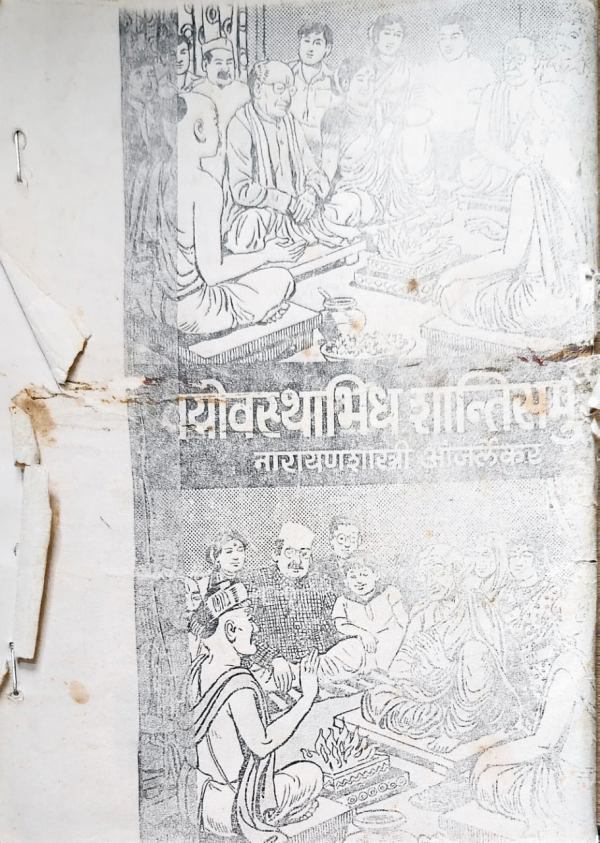 वयोवस्थाभिध शान्तिसमु
नारायणशास्त्री आंजर्लेकर